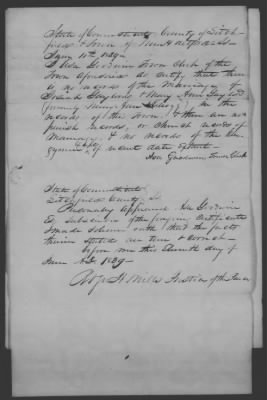 State of Connecticut County of Litch-
field & town of New Hartford Ss
June 11th 1839
I Asa Goodwin Town Clerk of the
Town aforesaid do certify that there
is no record of the Marriage of
Gaylord & Mary Ann Gaylord
(formerly Mary Ann) in the
records of the Town & there are no
parish records, or Church records of
Marriages & no records of the
except of recent date
Asa Goodwin Town Clerk
State of Connecticut
Litchfield County Ss
Personally Appeared Asa Goodwin
& subscriber of the foregoing Certificate
& made solemn oath that the facts
therein stated are true & correct
before me this Eleventh day of
June A.D. 1839
Mills Justice of the Peace